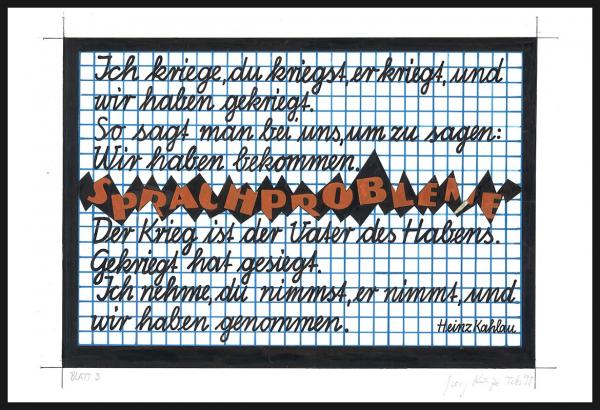 Ich kriege, du kriegst, er kriegt, und
wir haben gekriegt.
So sagt man bei uns, um zu sagen:
Wir haben bekommen.
SPRACHPROBLEME
Der Krieg ist der Vater des Habens.
Gekriegt hat gesiegt.
Ich nehme, du nimmst, er nimmt, und
wir haben genommen.
Heinz Kahlau
BLATT 3